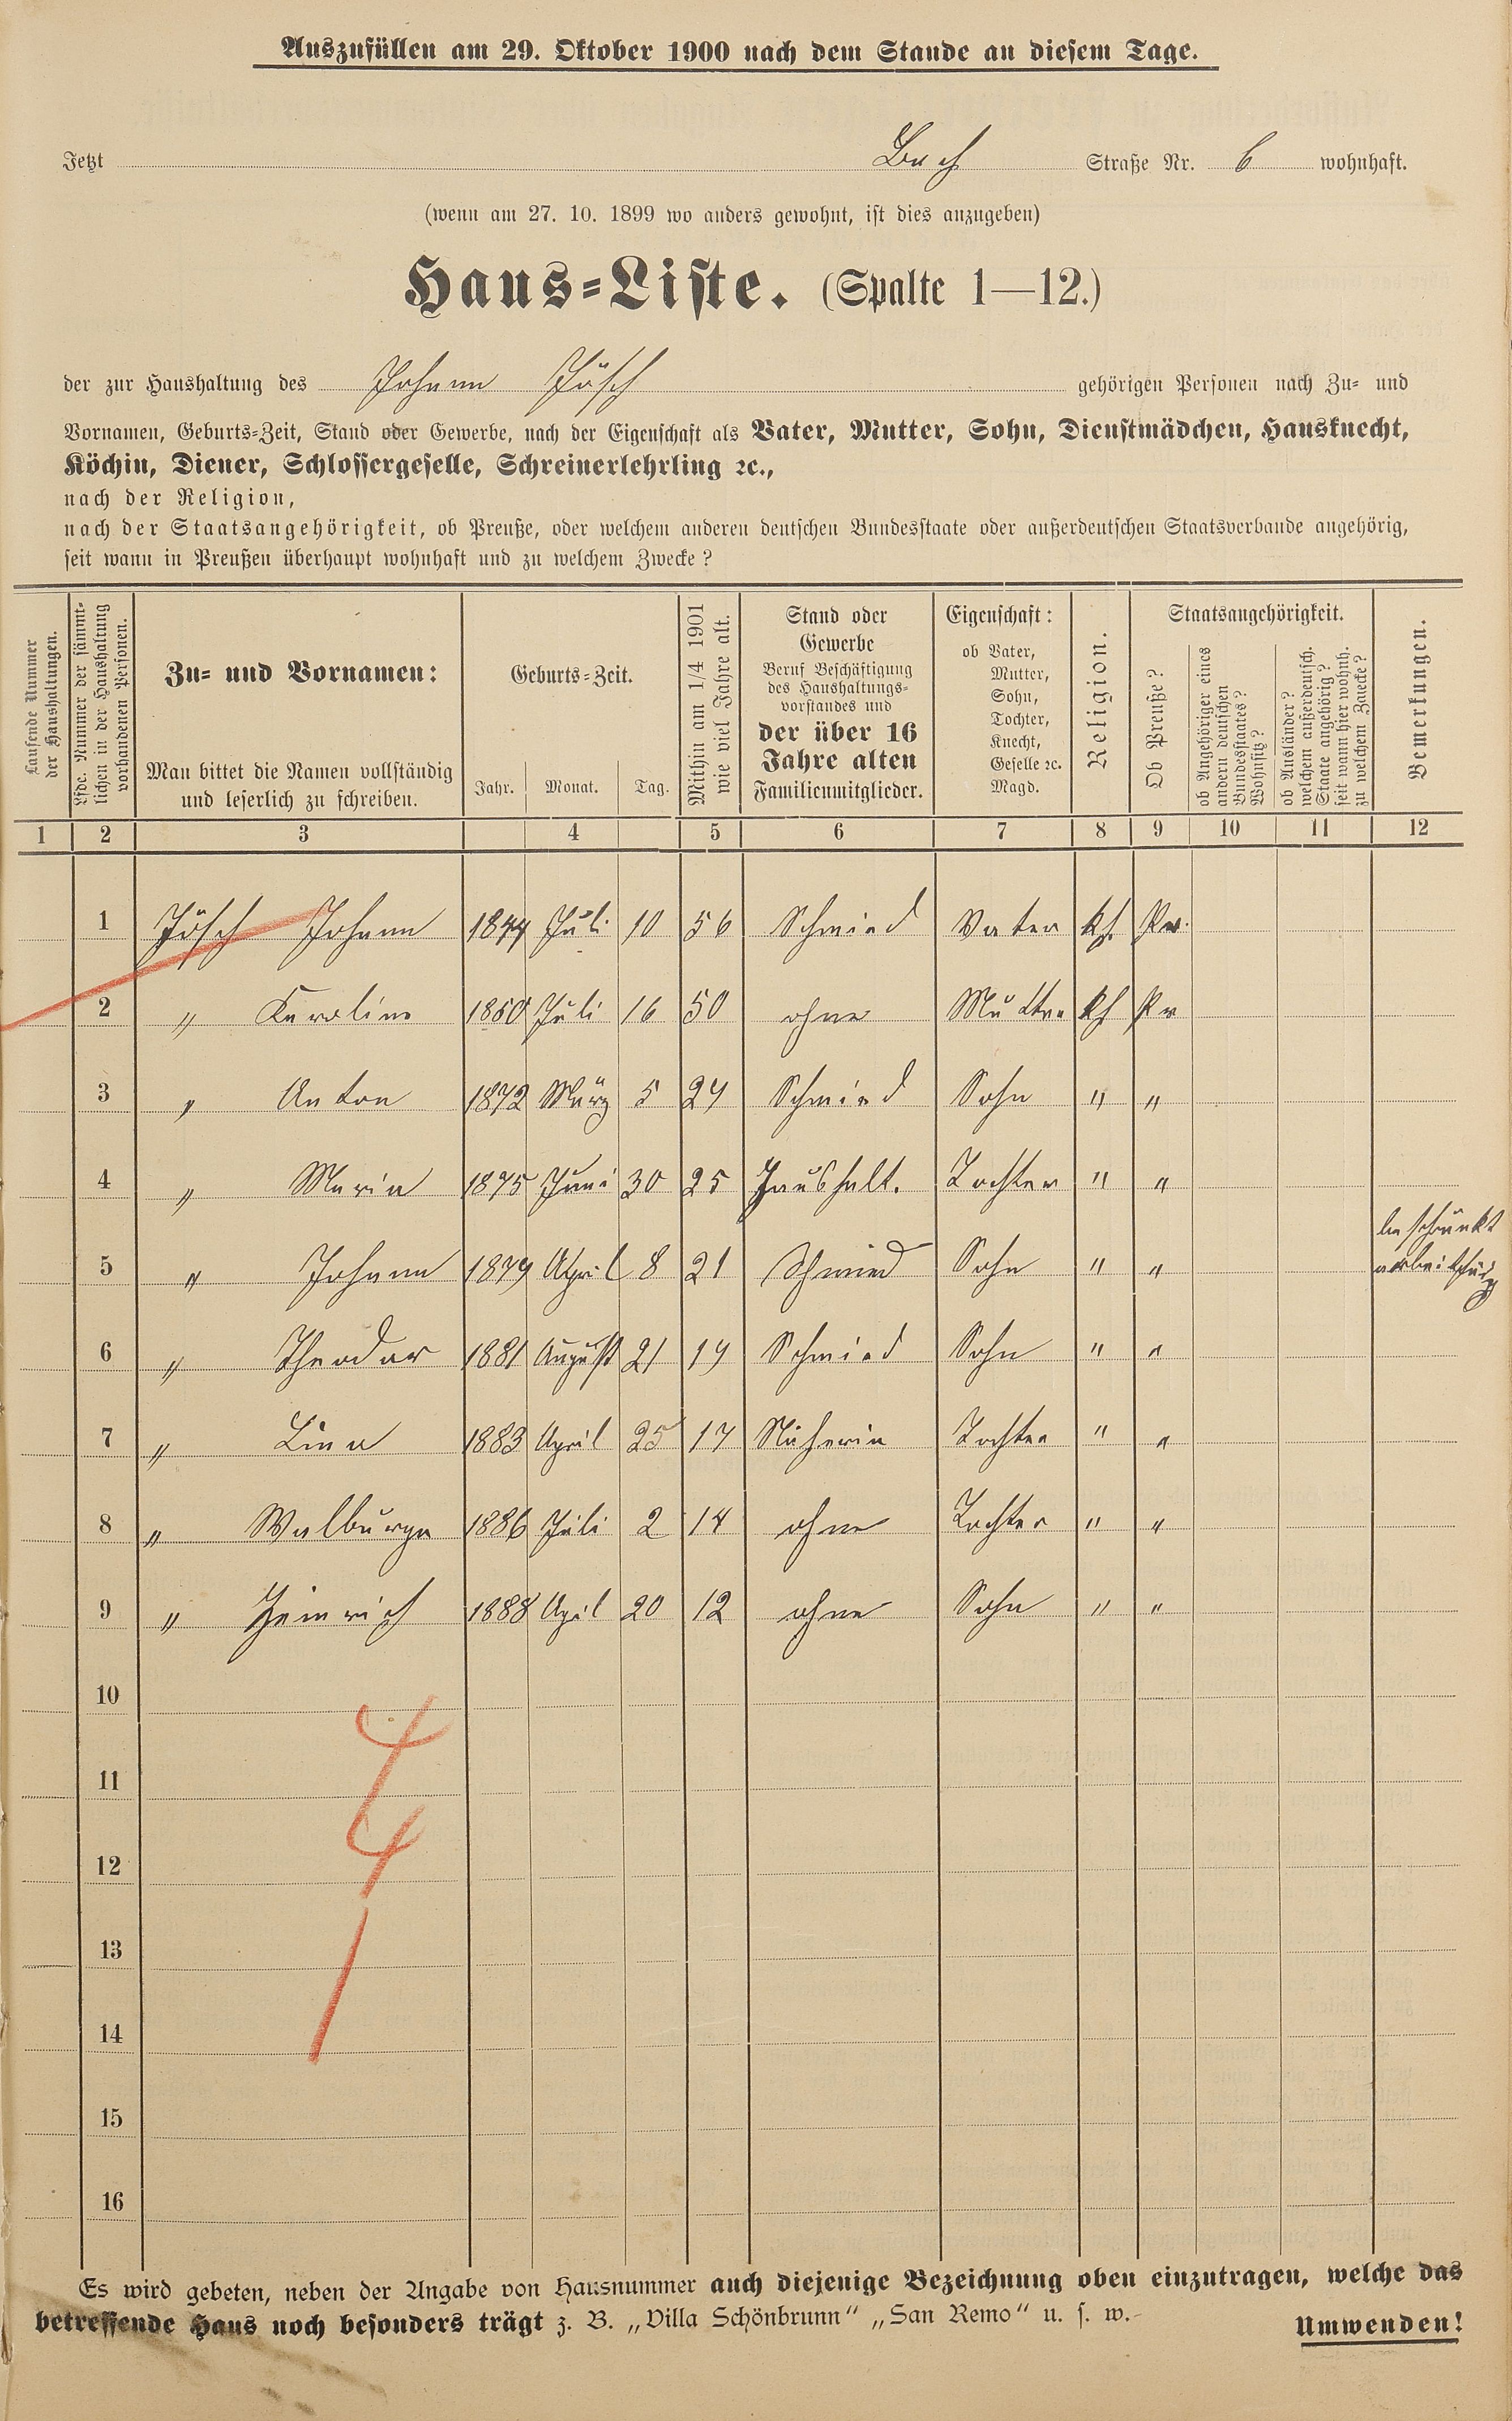 Auszufüllen am 29. Oktober 1900 nach dem Stande an diesem Tage.
Jetzt Bach Straße Nr. 6 wohnhaft.
(wenn am 27. 10. 1899 wo anders gewohnt, ist dies anzugeben)
Haus-Liste. (Spalte 1—12.)
der zur Haushaltung des Johann Jösch gehörigen Personen nach Zu- und
Vornamen, Geburts-Zeit, Stand oder Gewerbe, nach der Eigenschaft als Vater, Mutter, Sohn, Dienstmädchen, Hausknecht,
Köchin, Diener, Schlossergeselle, Schreinerlehrling ꝛc.,
nach der Religion,
nach der Staatsangehörigkeit, ob Preuße, oder welchem anderen deutschen Bundesstaate oder außerdeutschen Staatsverbande angehörig,
seit wann in Preußen überhaupt wohnhaft und zu welchem Zwecke?
Laufende Nummer
der Haushaltungen.
Lfde. Nummer der sämmt-
lichen in der Haushaltung
vorhandenen Personen.
Zu- und Vornamen:
Man bittet die Namen vollständig
und leserlich zu schreiben.
Geburts-Zeit.
Jahr. Monat. Tag.
Mithin am 1/4 1901
wie viel Jahre alt.
Stand oder
Gewerbe
Beruf Beschäftigung
des Haushaltungs-
vorstandes und
der über 16
Jahre alten
Familienmitglieder.
Eigenschaft:
ob Vater,
Mutter,
Sohn,
Tochter,
Knecht,
Geselle ꝛc.
Magd.
Religion.
Staatsangehörigkeit.
Ob Preuße?
ob Angehöriger eines
andern deutschen
Bundesstaates?
Wohnsitz?
ob Ausländer?
welchem außerdeutsch.
Staate angehörig?
seit wann hier wohnh.
zu welchem Zwecke?
Bemerkungen.
1 2 3 4 5 6 7 8 9 10 11 12
1 Jösch Johann 1844 Juli 10 56 Schmied Vater kth. Pr.
2 " Karoline 1850 Juli 16 50 ohne Mutter kth Pr
3 " Anton 1872 März 5 29 Schmied Sohn " "
4 " Maria 1875 Juni 30 25 Haushalt. Tochter " "
5 " Johann 1879 April 8 21 Schmied Sohn " " beschränkt
arbeitsfähig
6 " Theodor 1881 August 21 19 Schmied Sohn " "
7 " Lina 1883 April 25 17 Näherin Tochter " "
8 " Walburga 1886 Juli 2 14 ohne Tochter " "
9 " Heinrich 1888 April 20 12 ohne Sohn " "
10
11
12
13
14
15
16
4
4
1
Es wird gebeten, neben der Angabe von Hausnummer auch diejenige Bezeichnung oben einzutragen, welche das
betreffende Haus noch besonders trägt z. B. „Villa Schönbrunn“ „San Remo“ u. s. w.
Umwenden!